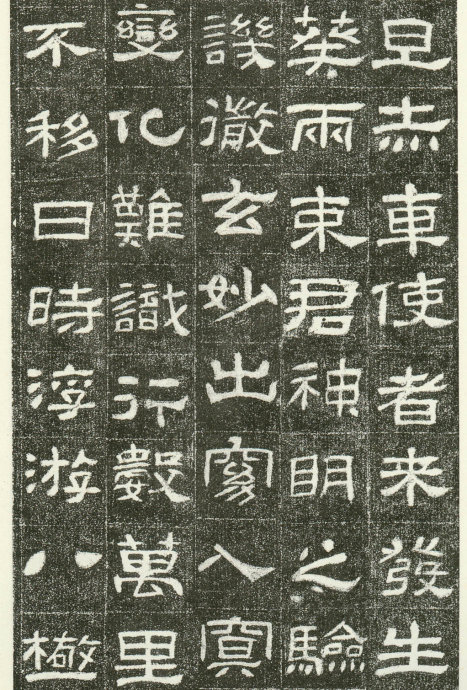 旦赤車使者来發生
葵兩束君神明之驗
譏徹玄妙出窈入冥
變化難識行數萬里
不移日時浮游八極